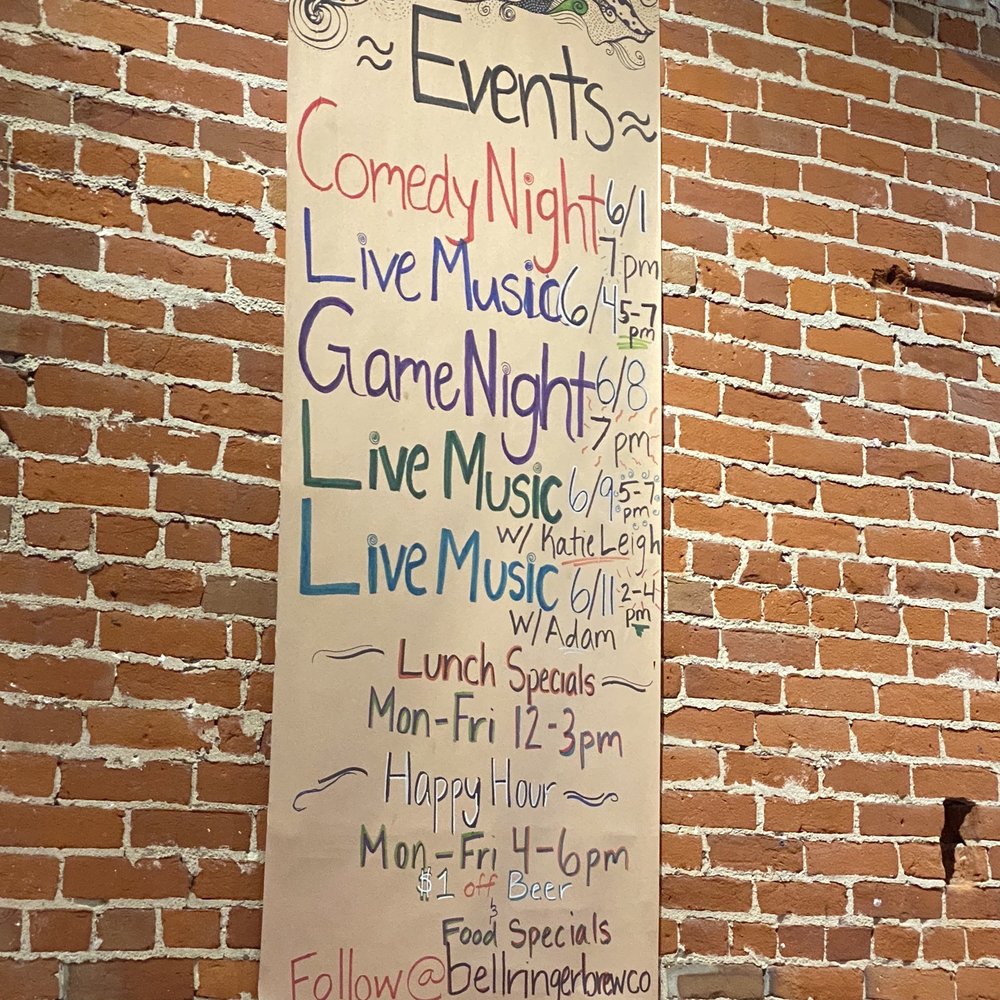 ≈ Events ≈
Comedy Night 6/1
7 pm
Live Music 6/4 5-7
pm
Game Night 6/8
7 pm
Live Music 6/9 5-7
pm
w/ Katie Leigh
Live Music 6/11 2-4
pm
w/ Adam
Lunch Specials
Mon-Fri 12-3pm
Happy Hour
Mon-Fri 4-6pm
$1 off Beer
&
Food Specials
Follow @bellringerbrewco